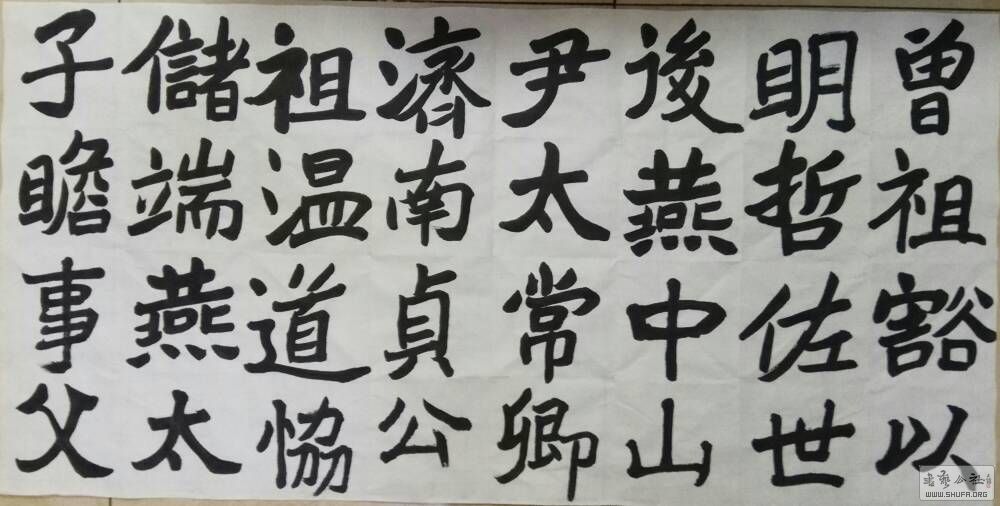 曾祖豁以
明哲佐世
後燕中山
尹太常卿
濟南貞公
祖温道協
儲端燕太
子瞻事父
書藝公社
WWW.SHUFA.ORG